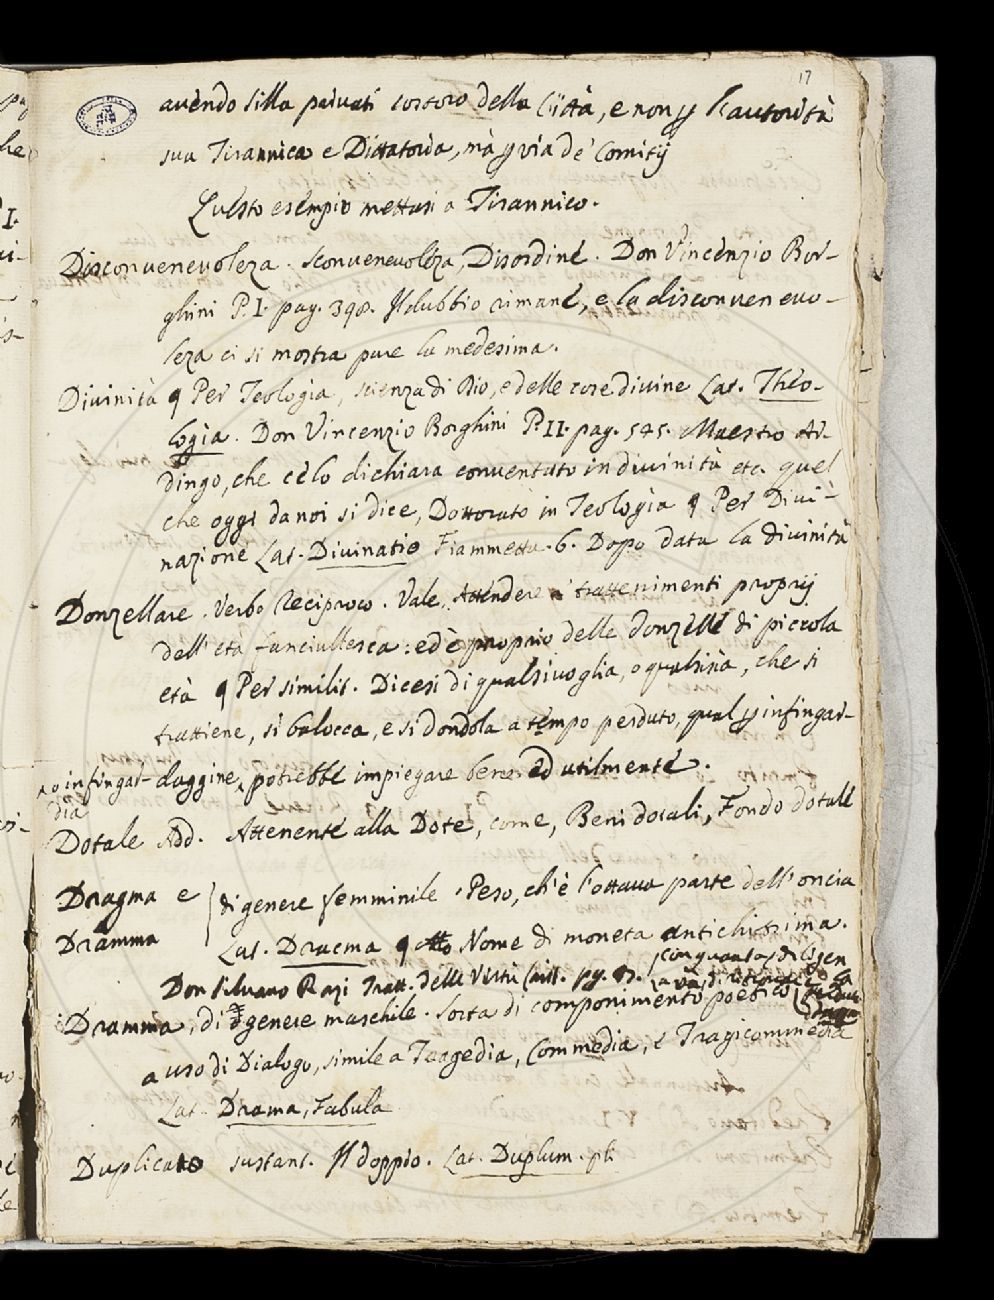 17
avendo Silla privati costoro della Città, e non p l'autorità
sua Tirannica e Dittatoria, mà p via de' Comitij
Questo esempio mettasi a Tirannico.
Disconvenevoleza. Sconvenevoleza, Disordine. Don Vincenzio Bor-
ghini P. I. pag. 398. Il dubbio rimane, e la disconvenevo-
leza ci si mostra pure la medesima.
Divinità ¶ Per Teologia, scienza di Dio, e delle cose divine Lat. Theo-
logia. Don Vincenzio Borghini P. II. pag. 545. Maestro Ar-
dingo, che ce lo dichiara conventato in divinità etc. quel
che oggi da noi si dice, Dottorato in Teologia ¶ Per Divi-
nazione Lat. Divinatio Fiammetta. 6. Dopo data la divinità
Donzellare. Verbo Reciproco. Vale, Attendere a' trattenimenti proprij
dell'età fanciullesca: ed è proprio delle donzelle di piccola
età ¶ Per similit. Dicesi di qualsivoglia, o qualsisia, che si
trattiene, si balocca, e si dondola a tempo perduto, qual p infingar-
daggine, potrebbe impiegare bene ed utilmente.
o infingar-
dia
Dotale Add. Attenente alla Dote, come, Beni dotali, Fondo dotale
Dragma e
Dramma
di genere femminile. Peso, ch'è l'ottava parte dell'oncia
Lat. Dracma ¶ Nome di moneta antichissima.
Don Silvano Razi Tratt. delle Virtù pag.
cinquanta
Dramma, di genere maschile. Sorta di componimento poetico
a uso di Dialogo, simile a Tragedia, Commedia, e Tragicommedia
Lat. Drama, Fabula
Duplicato sustant. Il doppio. Lat. Duplum. pli